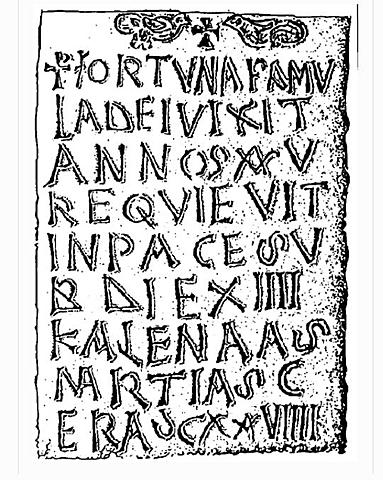 ⳨ FORTVNA FAMV
LA DEI VIXIT
ANNOS XXV
REQVIEVIT
IN PACE SV
B DIE XIIII
KALENAAS
MARTIAS C
ERAS CXXVIIII